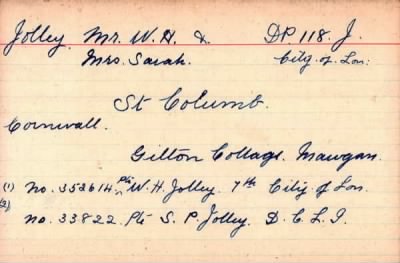 Jolley, Mr. W. H. & DP 118. J.
Mrs. Sarah. City. of Lon:
St Columb.
Cornwall.
Gilton Cottage. Mawgan.
(1) no. 353614 Pte W. H. Jolley. 7th City of Lon.
(2) no. 33822. Pte S. P. Jolley. D. C. L. I.